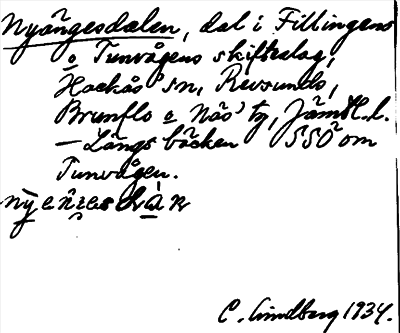 Nyängesdalen, dal i Fillingens
o Tunvågens skifteslag,
Hackås sn, Revsunds,
Brunflo o Näs tg, Jämtl. l.
— Längs bäcken SSO om
Tunvågen.
C. Lindberg 1934.